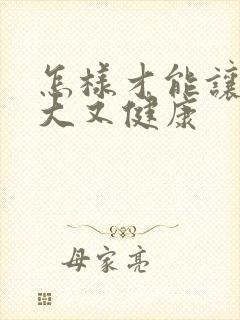 怎样才能讓
大又健康
母家亮